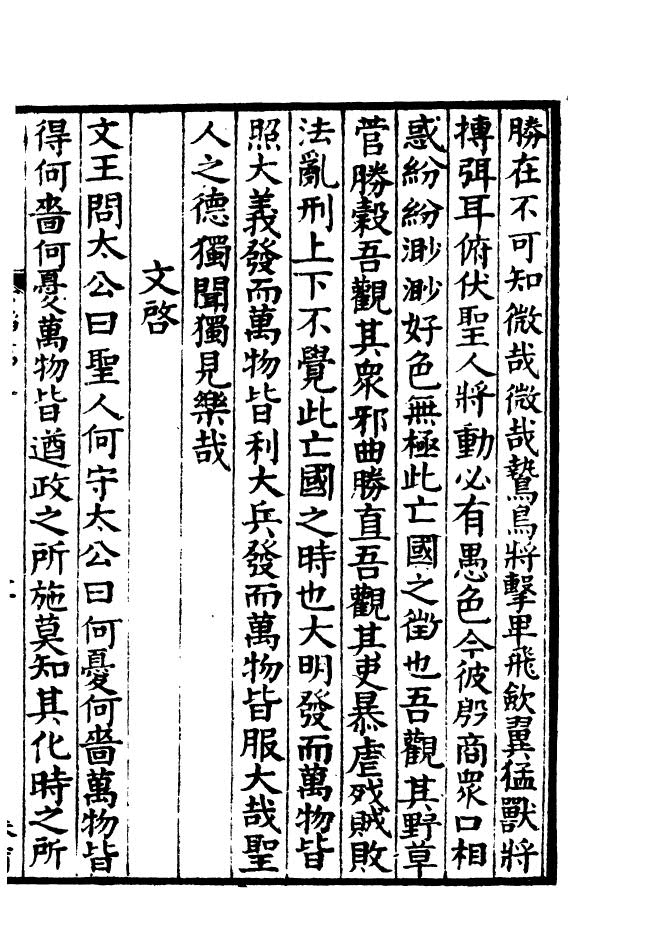 勝在不可知微哉微哉鷙鳥將擊卑飛歛翼猛獸將
搏弭耳俯伏聖人將動必有愚色今彼殷商衆口相
惑紛紛渺渺好色無極此亡國之徵也吾觀其野草
菅勝穀吾觀其衆邪曲勝直吾觀其吏暴虐殘賊敗
法亂刑上下不覺此亡國之時也大明發而萬物皆
照大義發而萬物皆利大兵發而萬物皆服大哉聖
人之德獨聞獨見樂哉
文啓
文王問太公曰聖人何守太公曰何憂何嗇萬物皆
得何嗇何憂萬物皆遒政之所施莫知其化時之所